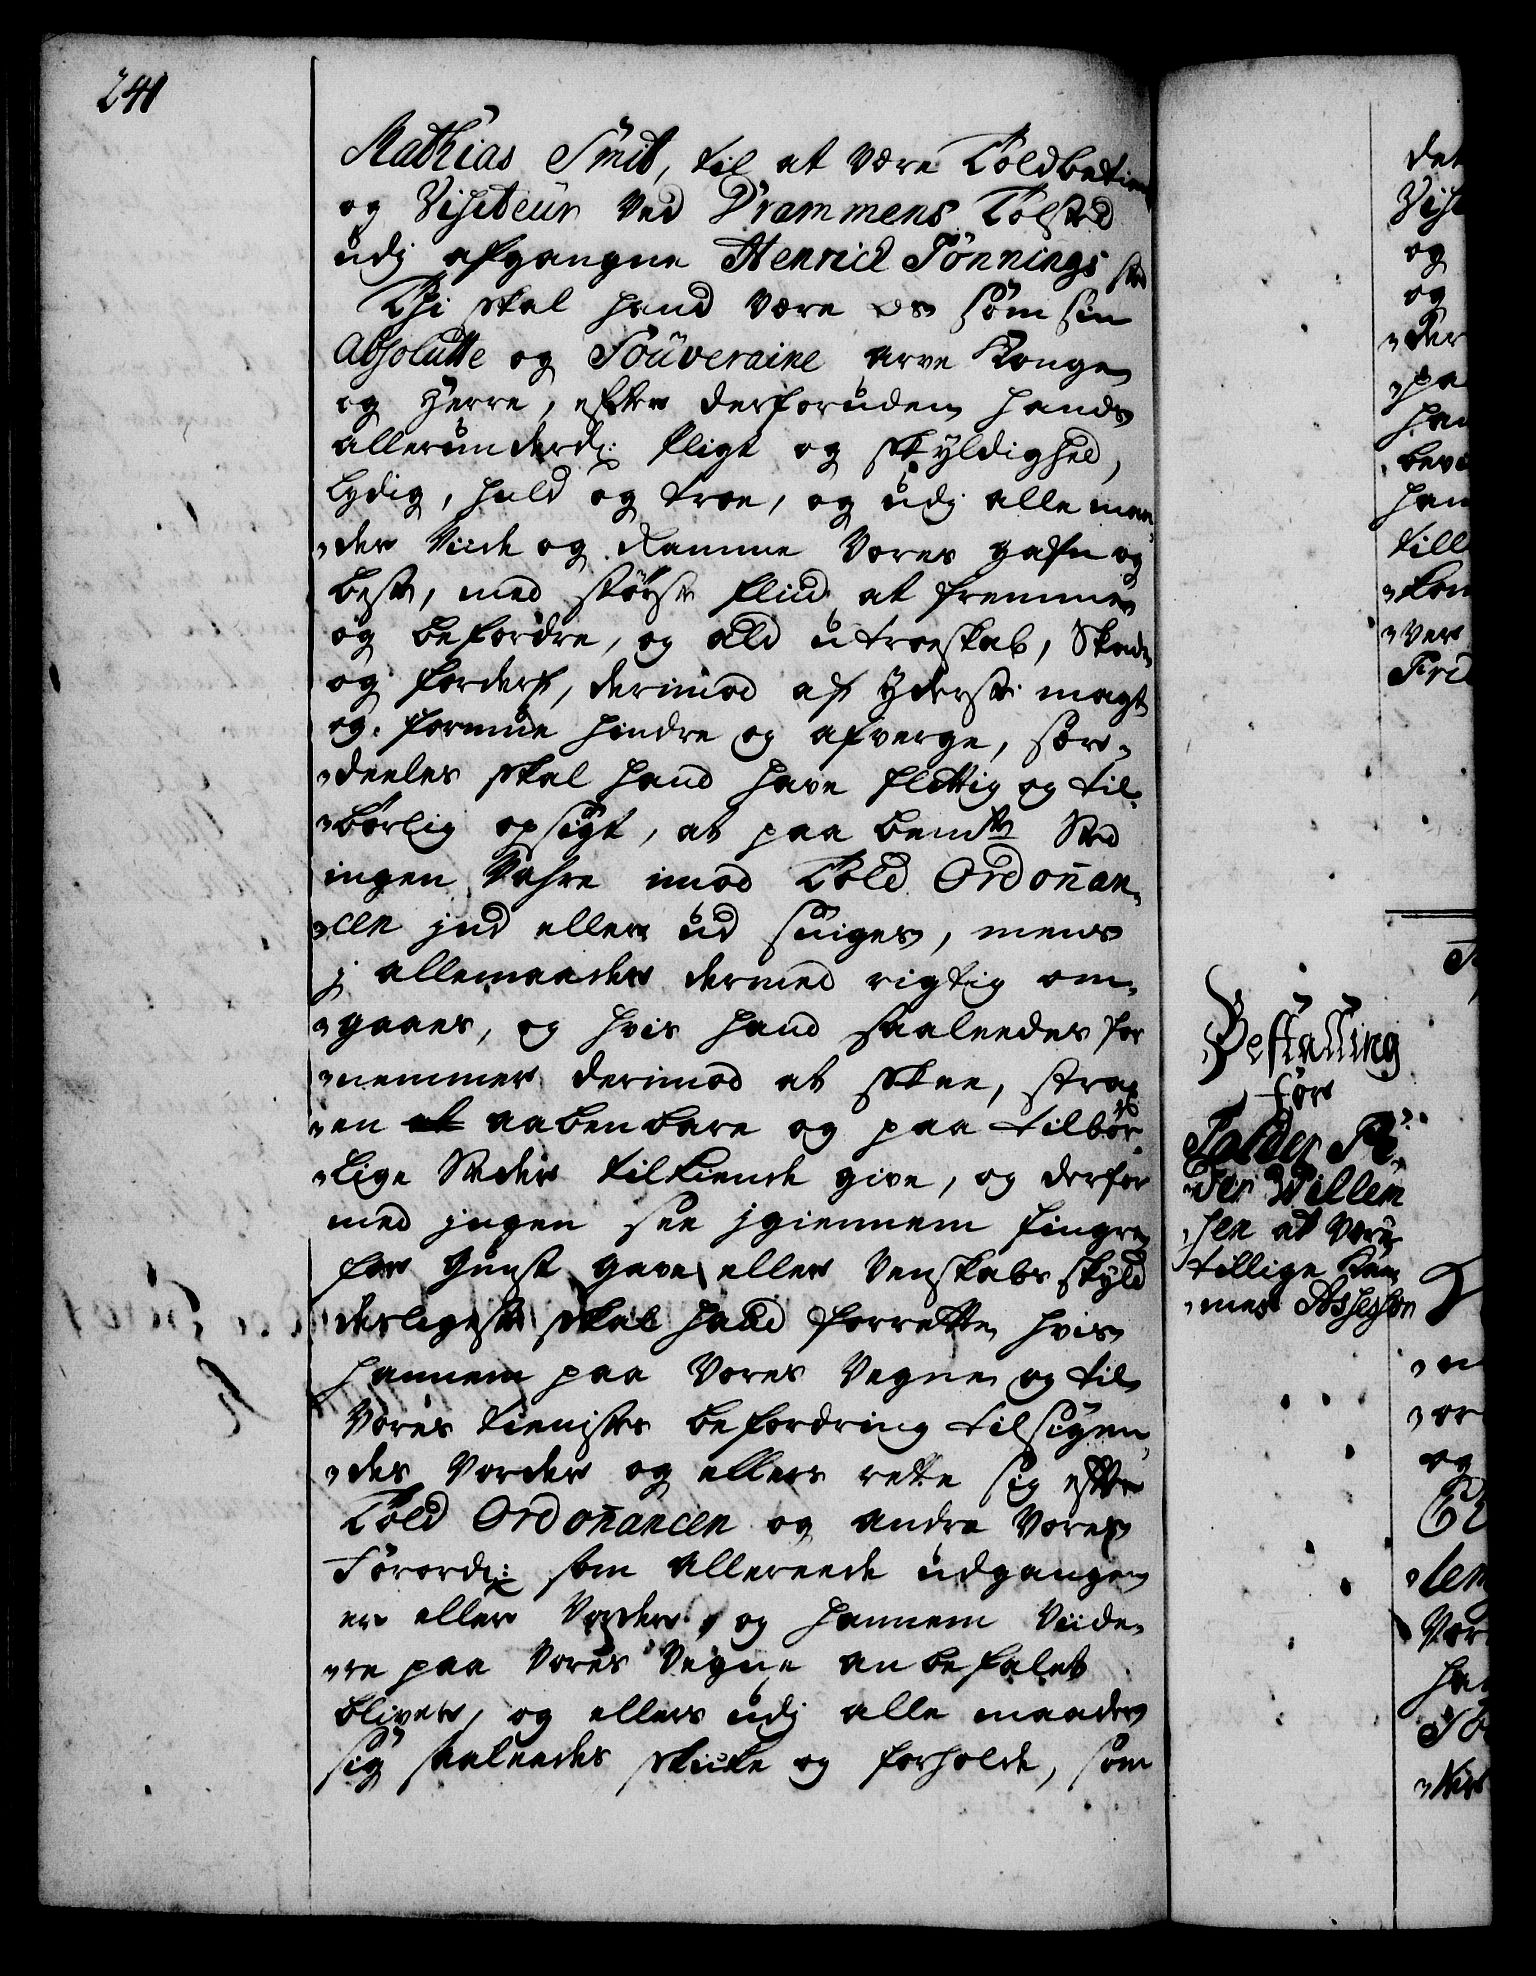 241
Mathias Smit, til at være Toldbetient
og Visiteur ved Drammens Tolsted
udj afgangne Henrich Tönnings sted
Thi skal hand være os som sin
Absolutte og Souveraine arve Konge
og Herre, efter derforuden hands
allerunderd: Pligt og skyldighed,
lydig, huld og troe, og udj alle maa„
„der Viide og Ramme Vores gafn og
beste, med störste fliid at fremme
og befordre, og ald utroeskab, Skade
og forderf, derimod af yderste magt
og formue hindre og afverge, sær„
„deeles skal hand have flittig og til„
„börlig opsigt, at paa bemte Sted
ingen Vahre imod Told Ordoñan„
„cen ind eller ud sniges, mens
j allemaader dermed rigtig om„
„gaaes, og hvis hand saaleedes for
„nemmer derimod at skee, strax
„en at aabenbare og paa tilbör„
„lige Steder tilkiende give, og derfor
med ingen see igiennem fingre
for gunst, gave, eller Venskabs skyld
„derligeste skal hand forrette, hvis
hannem paa Vores Vegne og til
Vores tienistes befordring tilsigen„
„des Vorder og ellers rette sig efter
Told Ordoñancen og andre Vores
Forord: som allereede udgangen
er eller Vorder, og hannem Viide„
„re paa Vores Vegne anbefalet
bliver, og ellers udj alle maader
sig saaleedes skicke og forholde, som
Bestalling
for
Tolder Pe„
„der Willem
„sen at være
tillige Kam
„mer Assessor